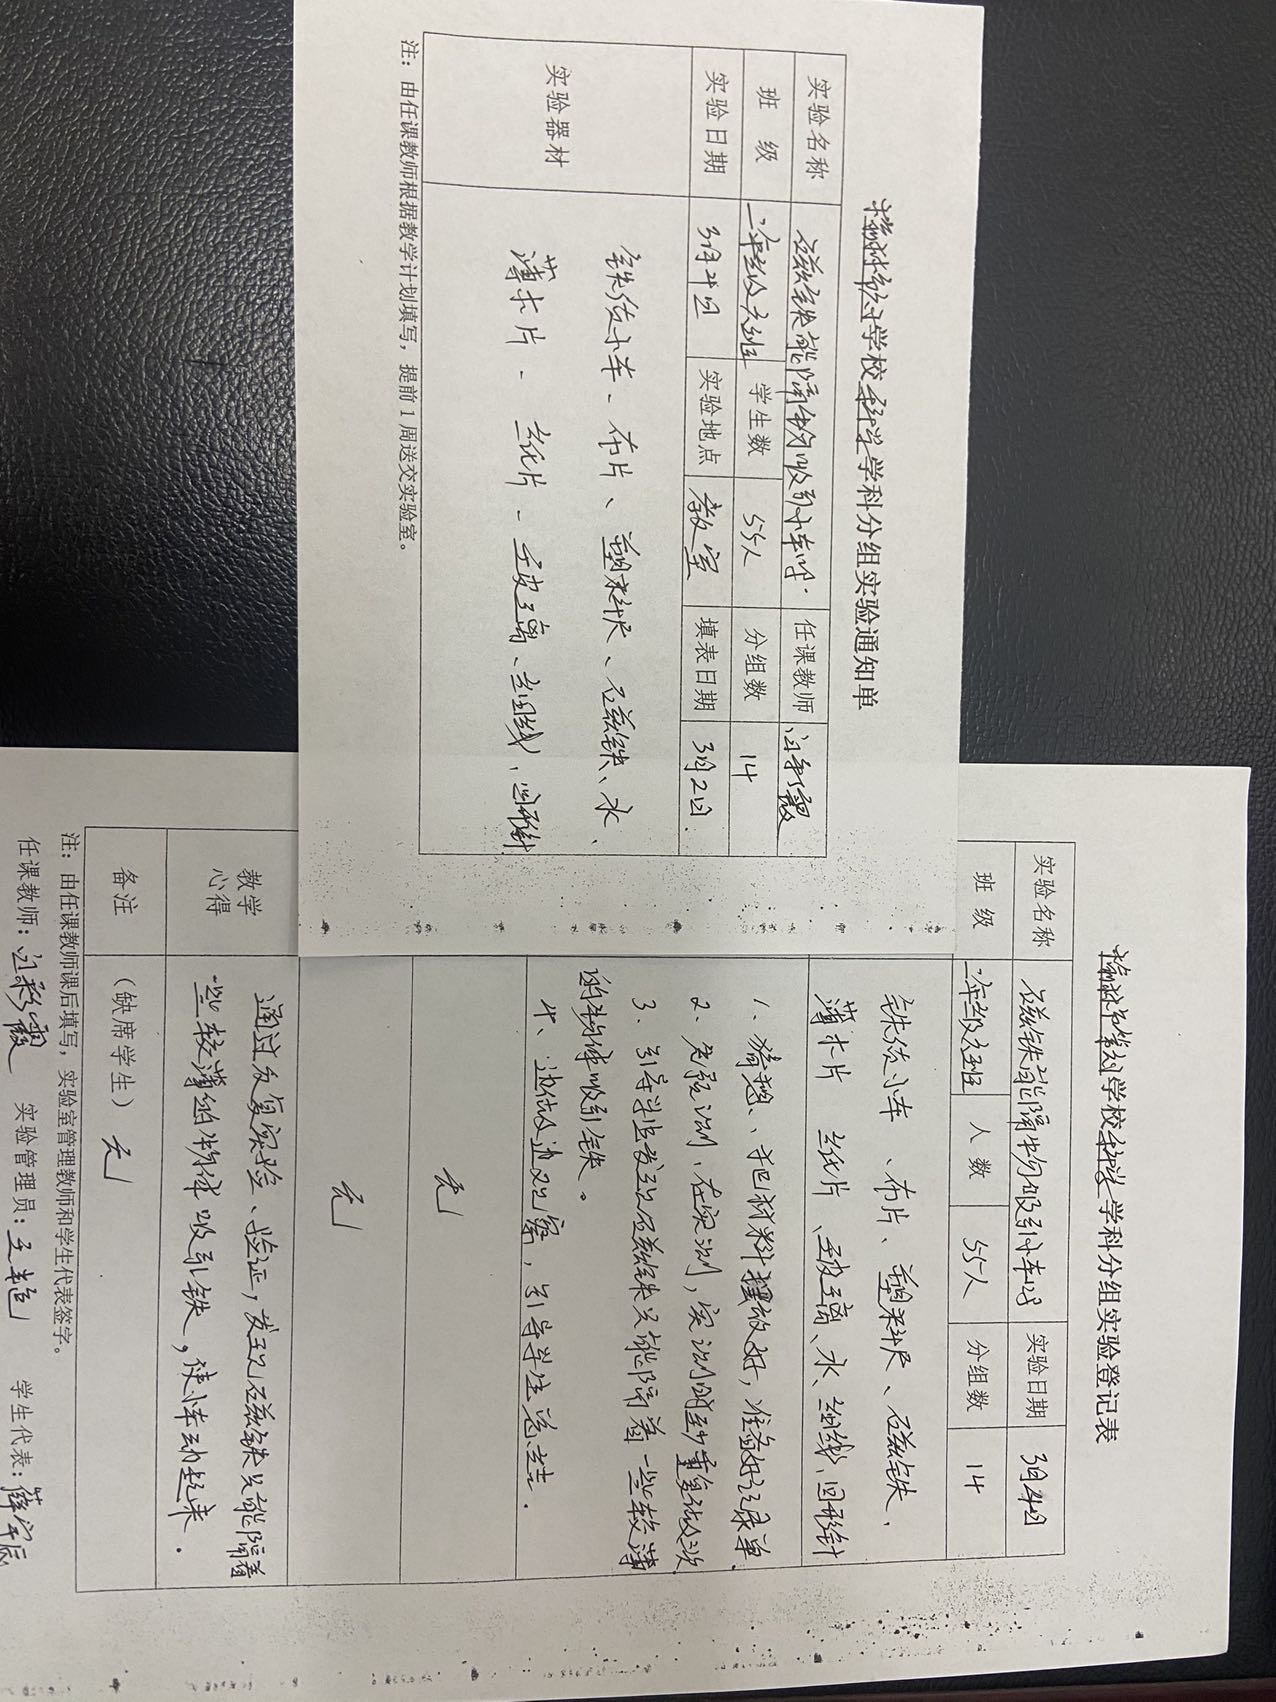 学校科学学科分组实验通知单
实验名称 磁铁能隔物吸引小车吗 任课教师 白彩霞
班级 二年级六班 学生数 55人 分组数 14
实验日期 3月4日 实验地点 教室 填表日期 3月2日
实验器材
铁货小车、布片、塑料尺、磁铁、水、
薄木片、纸片、玻璃、细线、回形针
注：由任课教师根据教学计划填写，提前1周送交实验室。
学校科学学科分组实验登记表
实验名称 磁铁能隔物吸引小车吗 实验日期 3月4日
班级 二年级六班 人数 55人 分组数 14
铁货小车、布片、塑料尺、磁铁、
薄木片 纸片、玻璃、水、细线、回形针
1、猜想、把材料摆放好，准备好记录单.
2、先预测，在实测，实测时至少重复做次
3、引导学生发现磁铁只能隔着一些较薄
的物体吸引铁。
4、边做边观察，引导学生总结.
无
无
教学心得
通过反复实验、验证，发现磁铁只能隔着
一些较薄的物体吸引铁，使小车动起来.
备注 （缺席学生） 无
注：由任课教师课后填写，实验室管理教师和学生代表签字。
任课教师：白彩霞 实验管理员：王艳 学生代表：薛